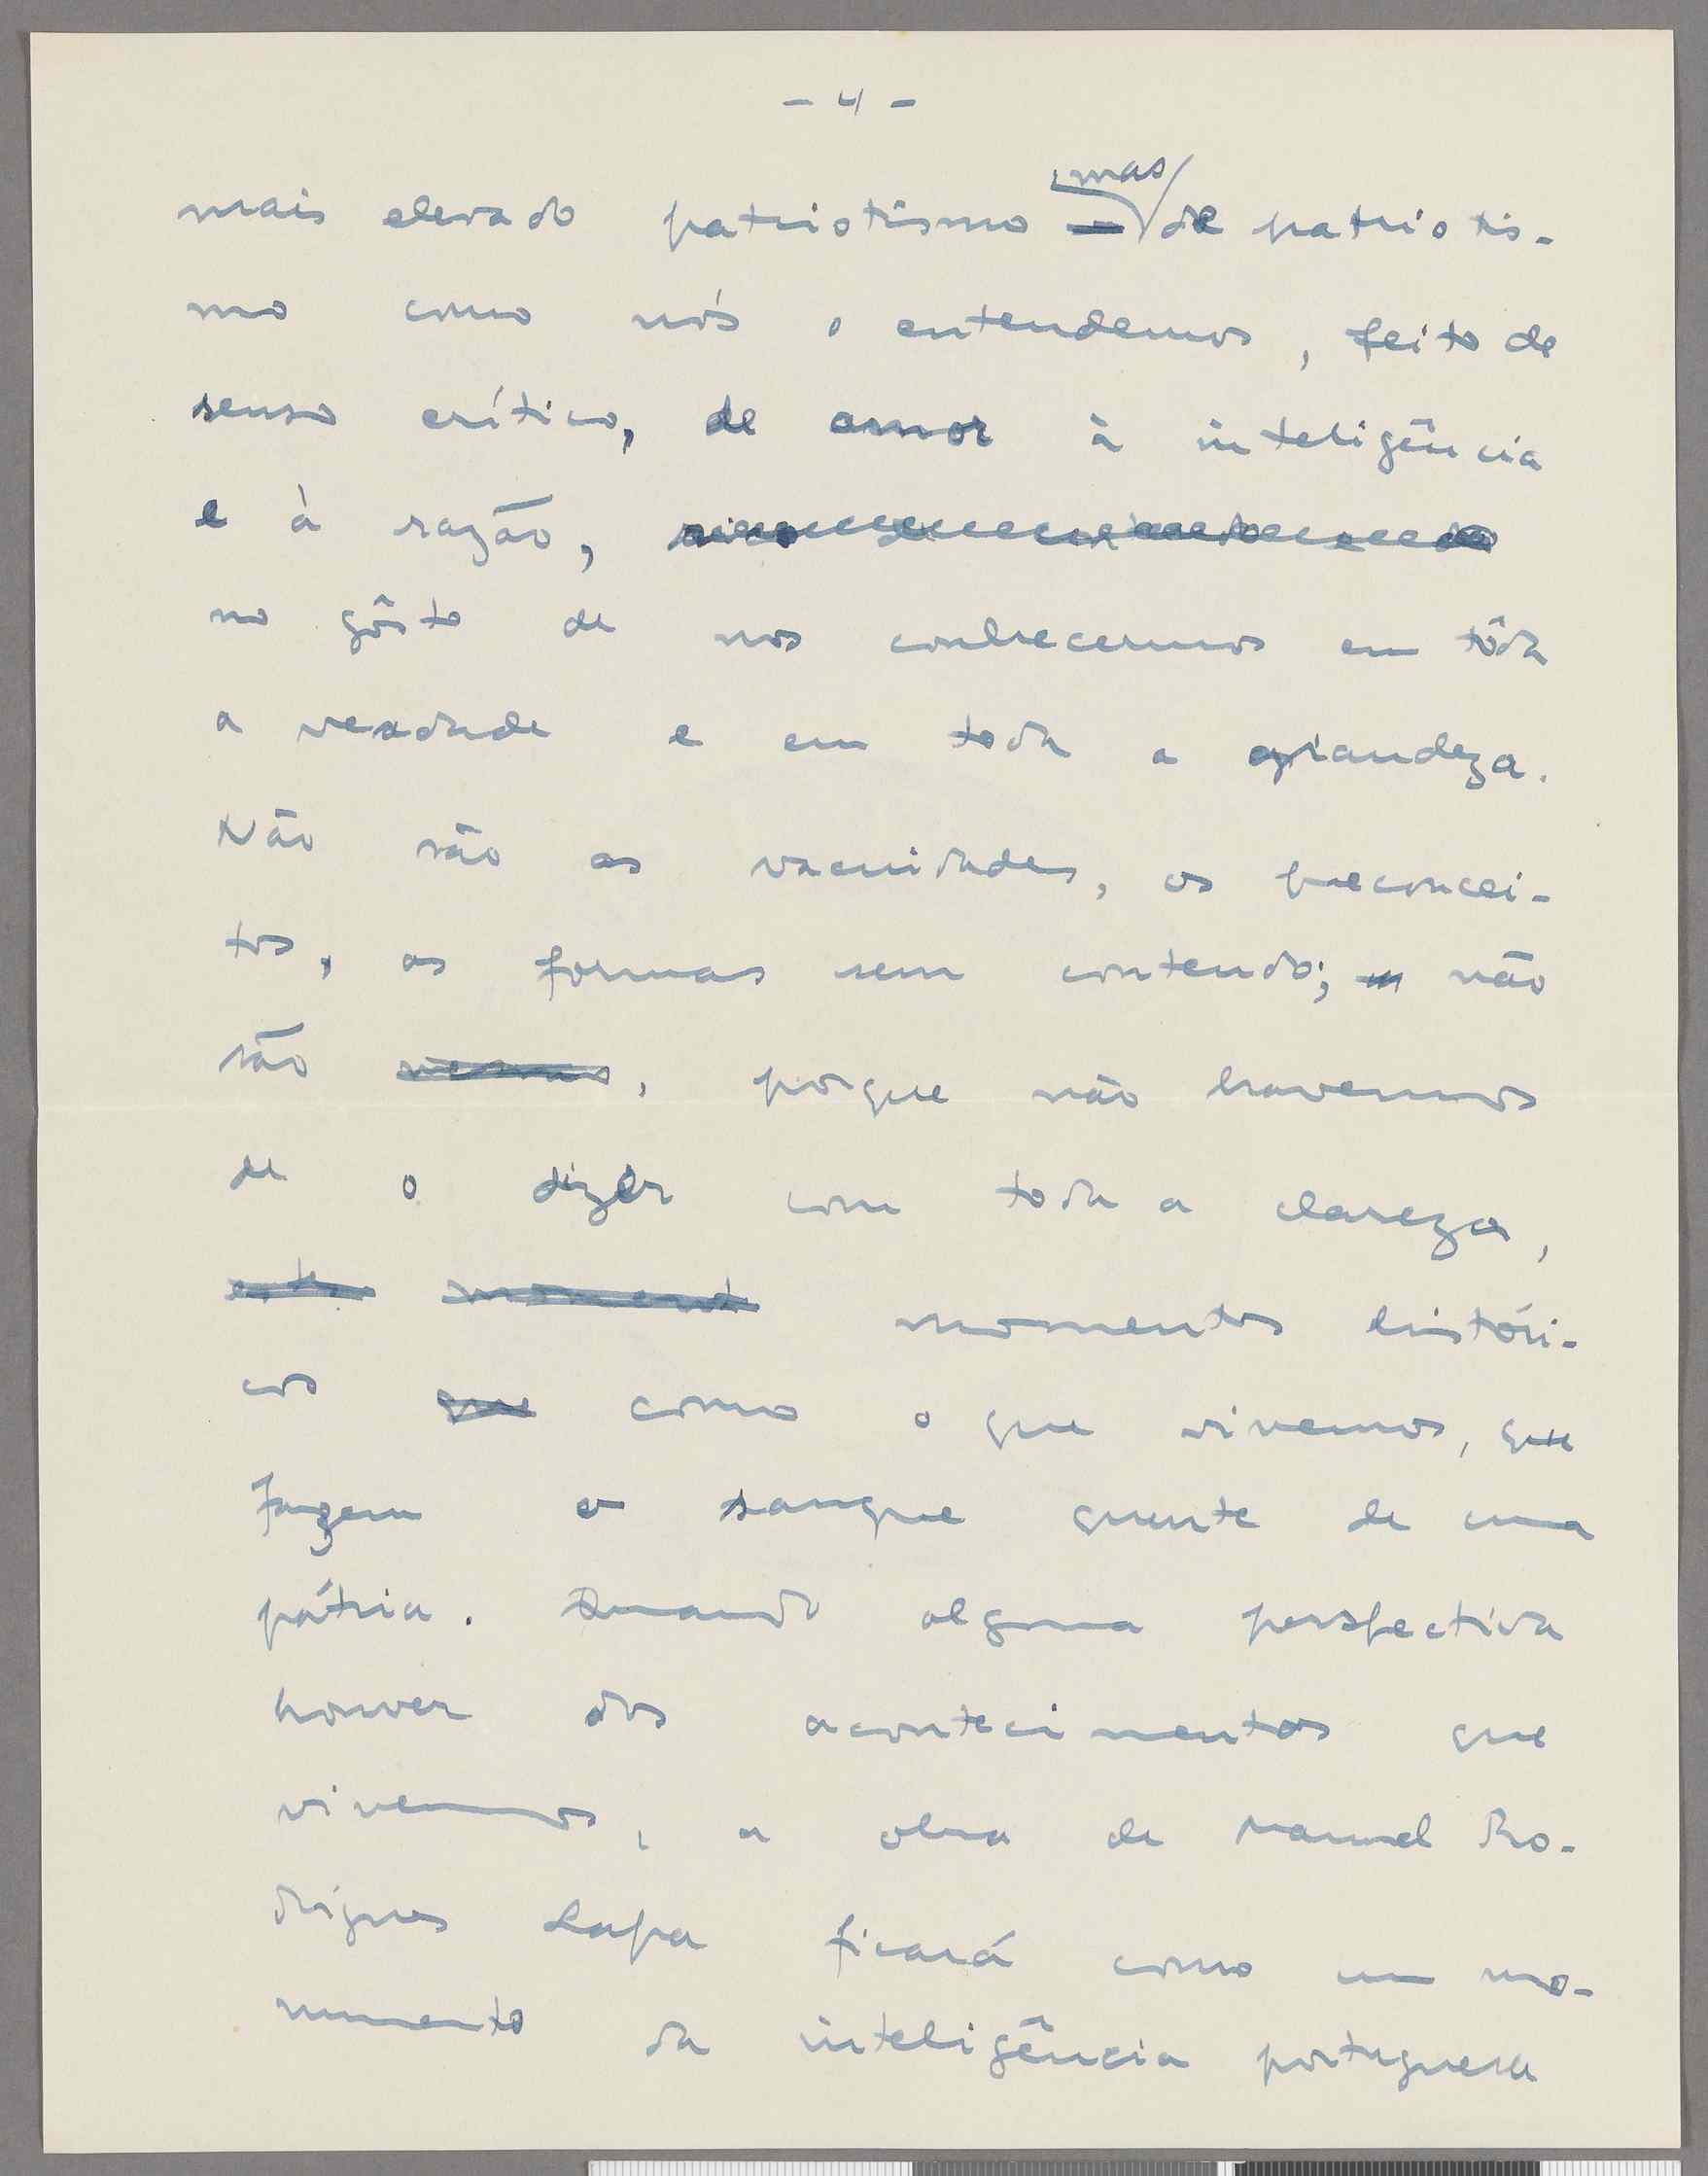 - 4 -
, mas
mais elevado patriotismo de patriotis-
mo como nós o entendemos, feito de
senso crítico, de amor à inteligência
e à razão,
no gôsto de nos conhecermos em tôda
a verdade e em toda a grandeza.
Não são as vacuidades, os preconcei-
tos, as formas sem contendo; não
são , porque não havemos
de o dizer com toda a clareza,
momentos históri-
cos que como o que vivemos, que
fazem o sangue quente de uma
pátria. Quando alguma perspectiva
houver dos acontecimentos que
vivemos, a obra de Manuel Ro-
drigues Lapa ficará como um mo-
numento da inteligência portuguesa